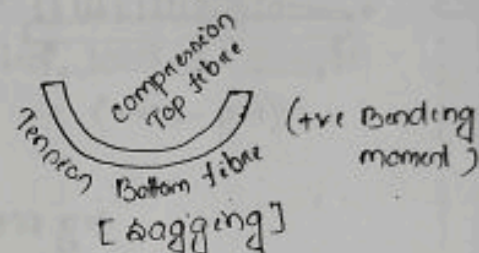 compression
Top fibre
Tension
Bottom fibre
(+ve Bending
moment)
[sagging]